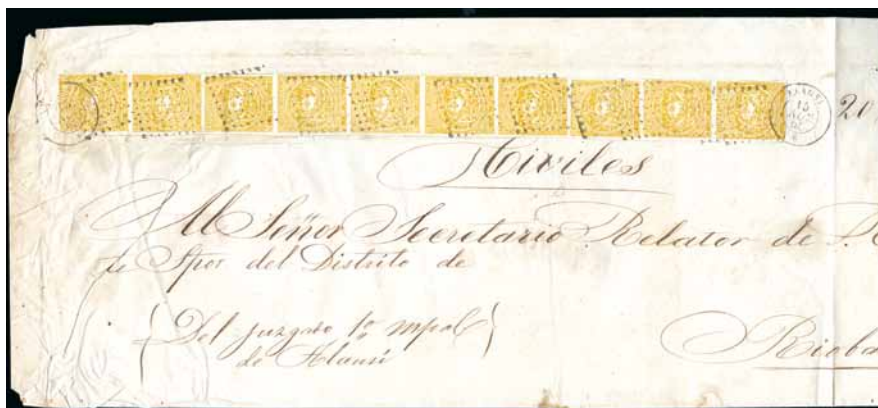 20
Civiles
Al Señor Secretario Relator de
del Distrito de
Del juzgado 1º mpal
de Alausí
Rioba